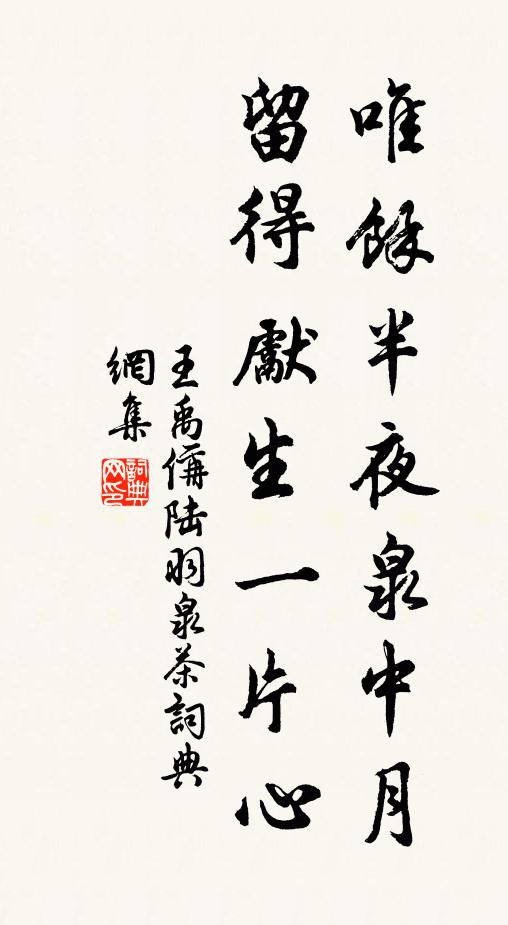 唯餘半夜泉中月
留得獻生一片心
王禹偁陸羽泉茶詞典
網集
詞典
网印